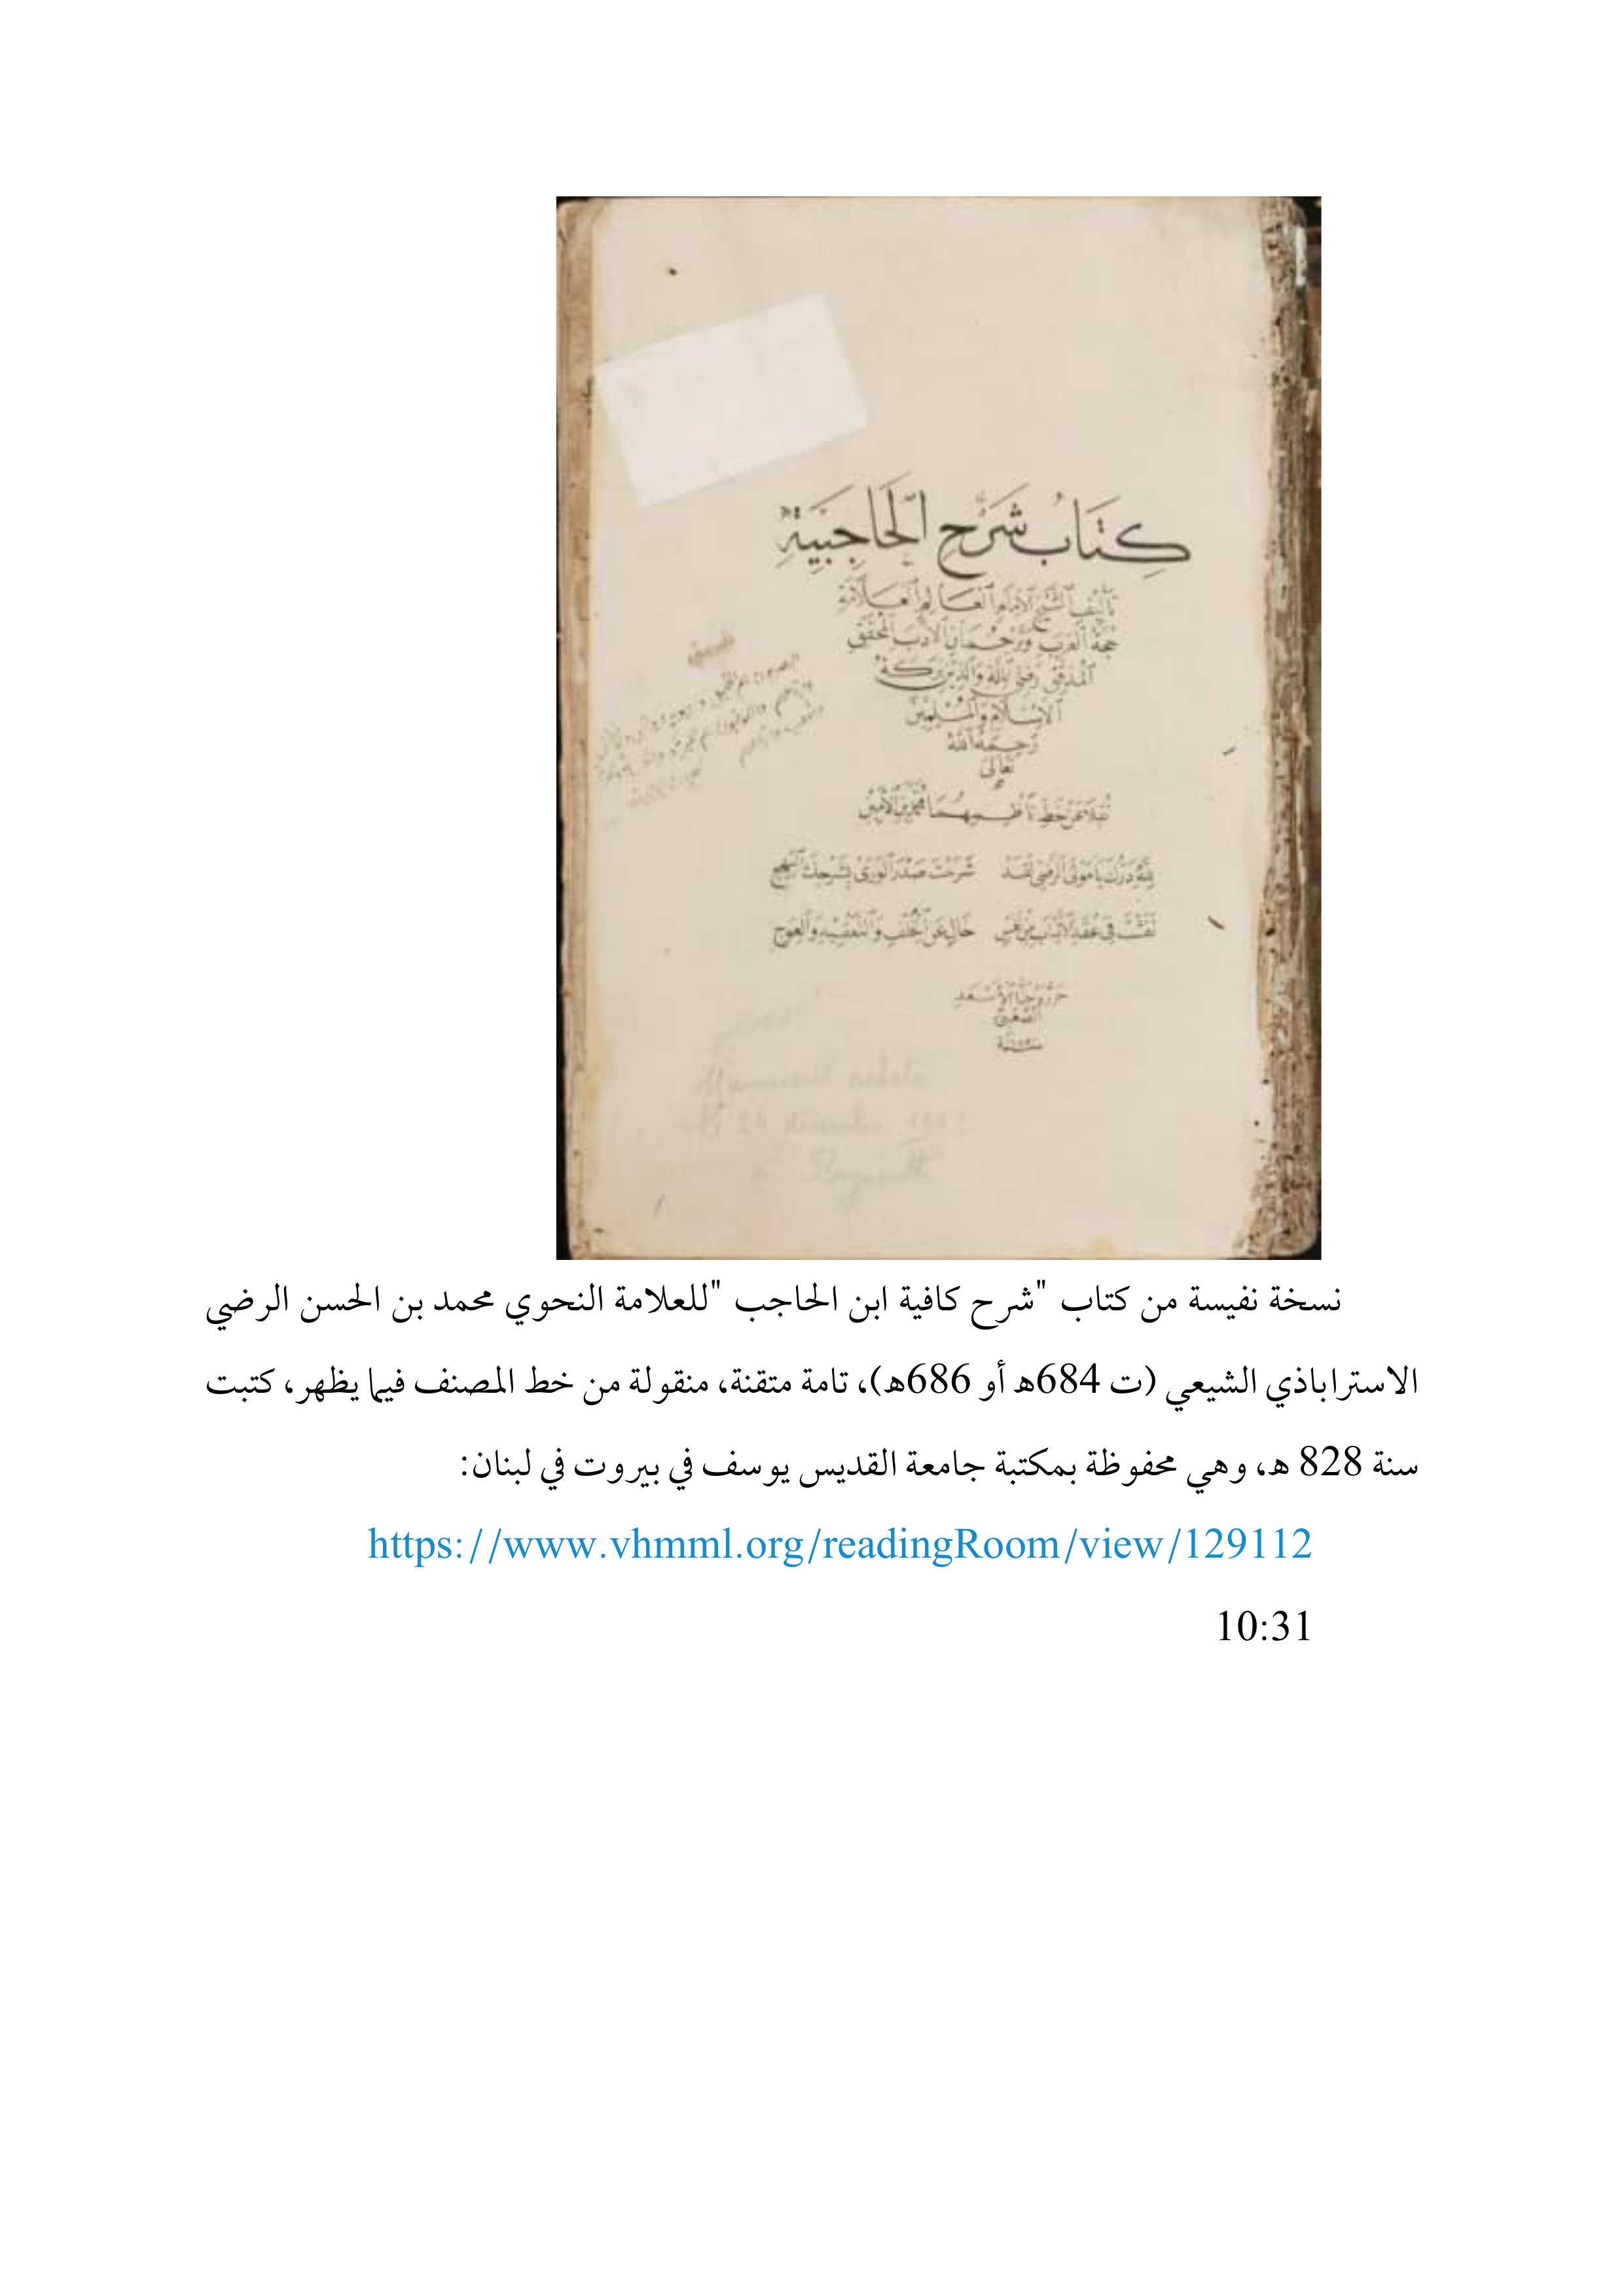 كِتَابُ شَرْحِ الْحَاجِبِيَّةِ
تأليف الشيخ الإمام العالم العلامة
حجة العرب وترجمان الأدب المحقق
المدقق رضي الملة والدين بركة
الإسلام والمسلمين
رحمه الله
تعالى
نقلا عن خط ناظمهما محمد بن الأمين
لله درك يا مولى الرضي لقد شرحت صدر الورى بشرحك البهج
خال عن الخلف والتعقيد والعوج
سنة
Manuscrit acheté
24 décembre
à Beyrouth
نسخة نفيسة من كتاب "شرح كافية ابن الحاجب "للعلامة النحوي محمد بن الحسن الرضي
الاستراباذي الشيعي (ت 684ه أو 686ه)، تامة متقنة، منقولة من خط المصنف فيما يظهر، كتبت
سنة 828 ه، وهي محفوظة بمكتبة جامعة القديس يوسف في بيروت في لبنان:
https://www.vhmml.org/readingRoom/view/129112
10:31